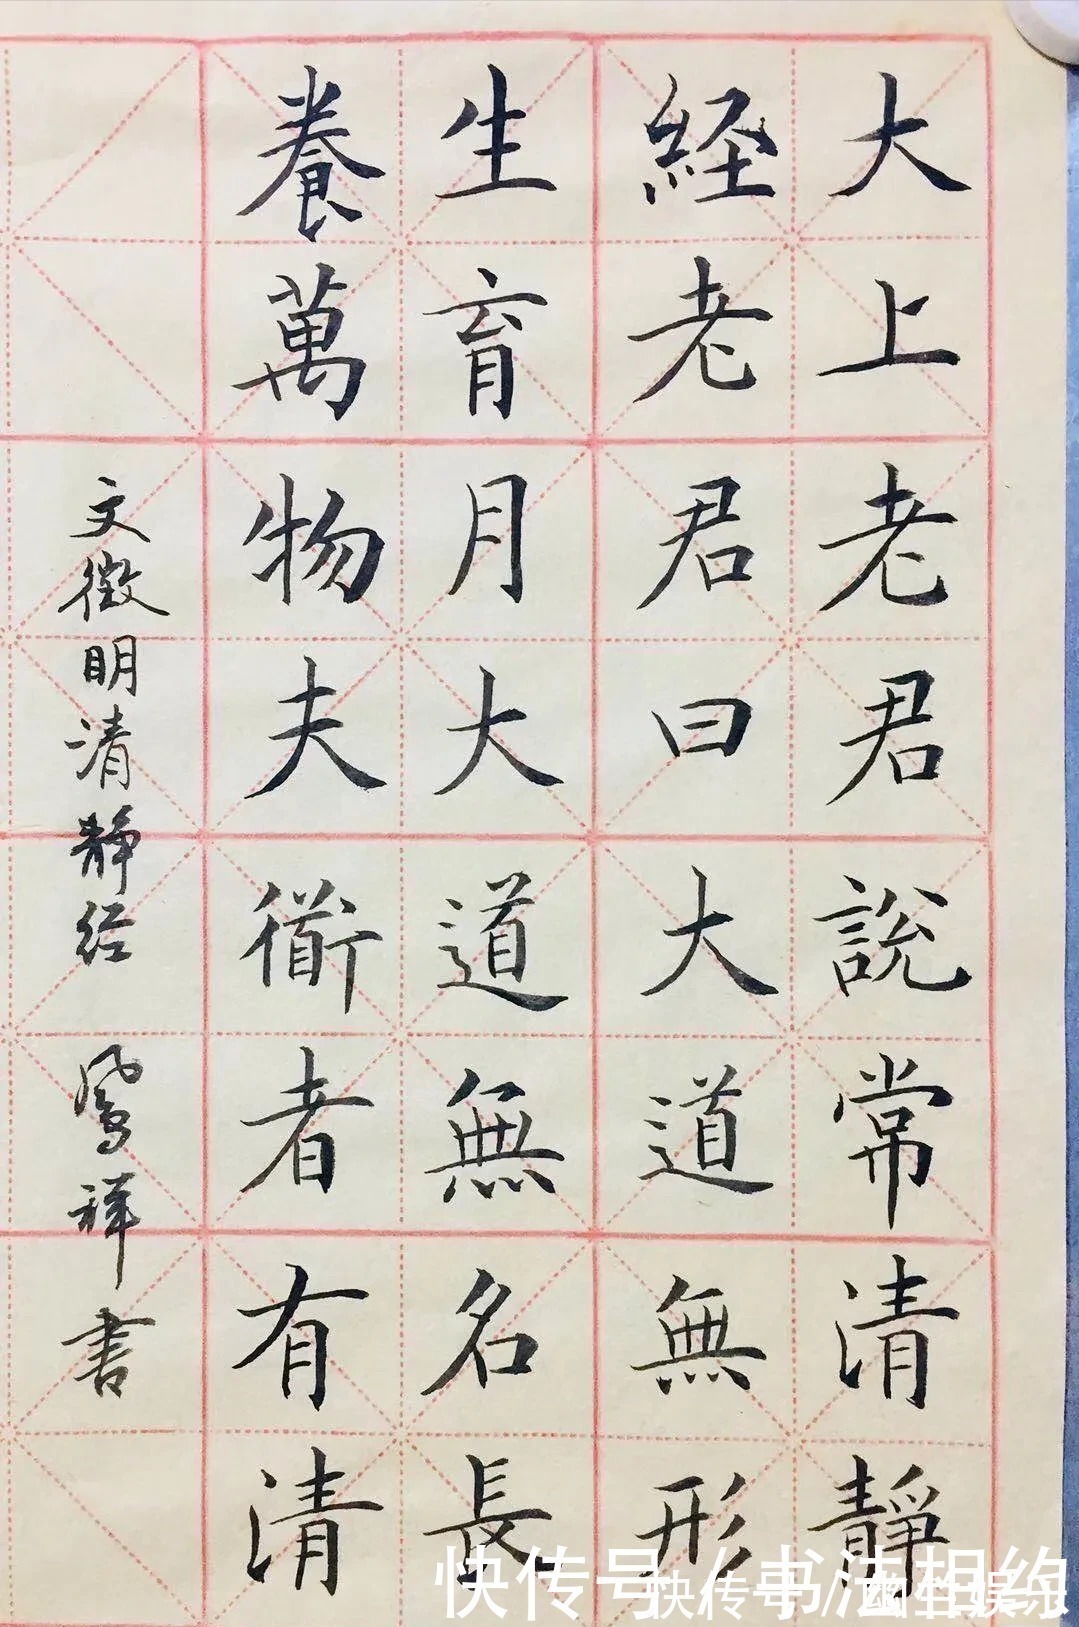 大上老君說常清靜
經老君曰大道無形
生育月大道無名長
養萬物夫衜者有清
文徵明清静经 鳳祥書
快传号/书法相约
快传号/